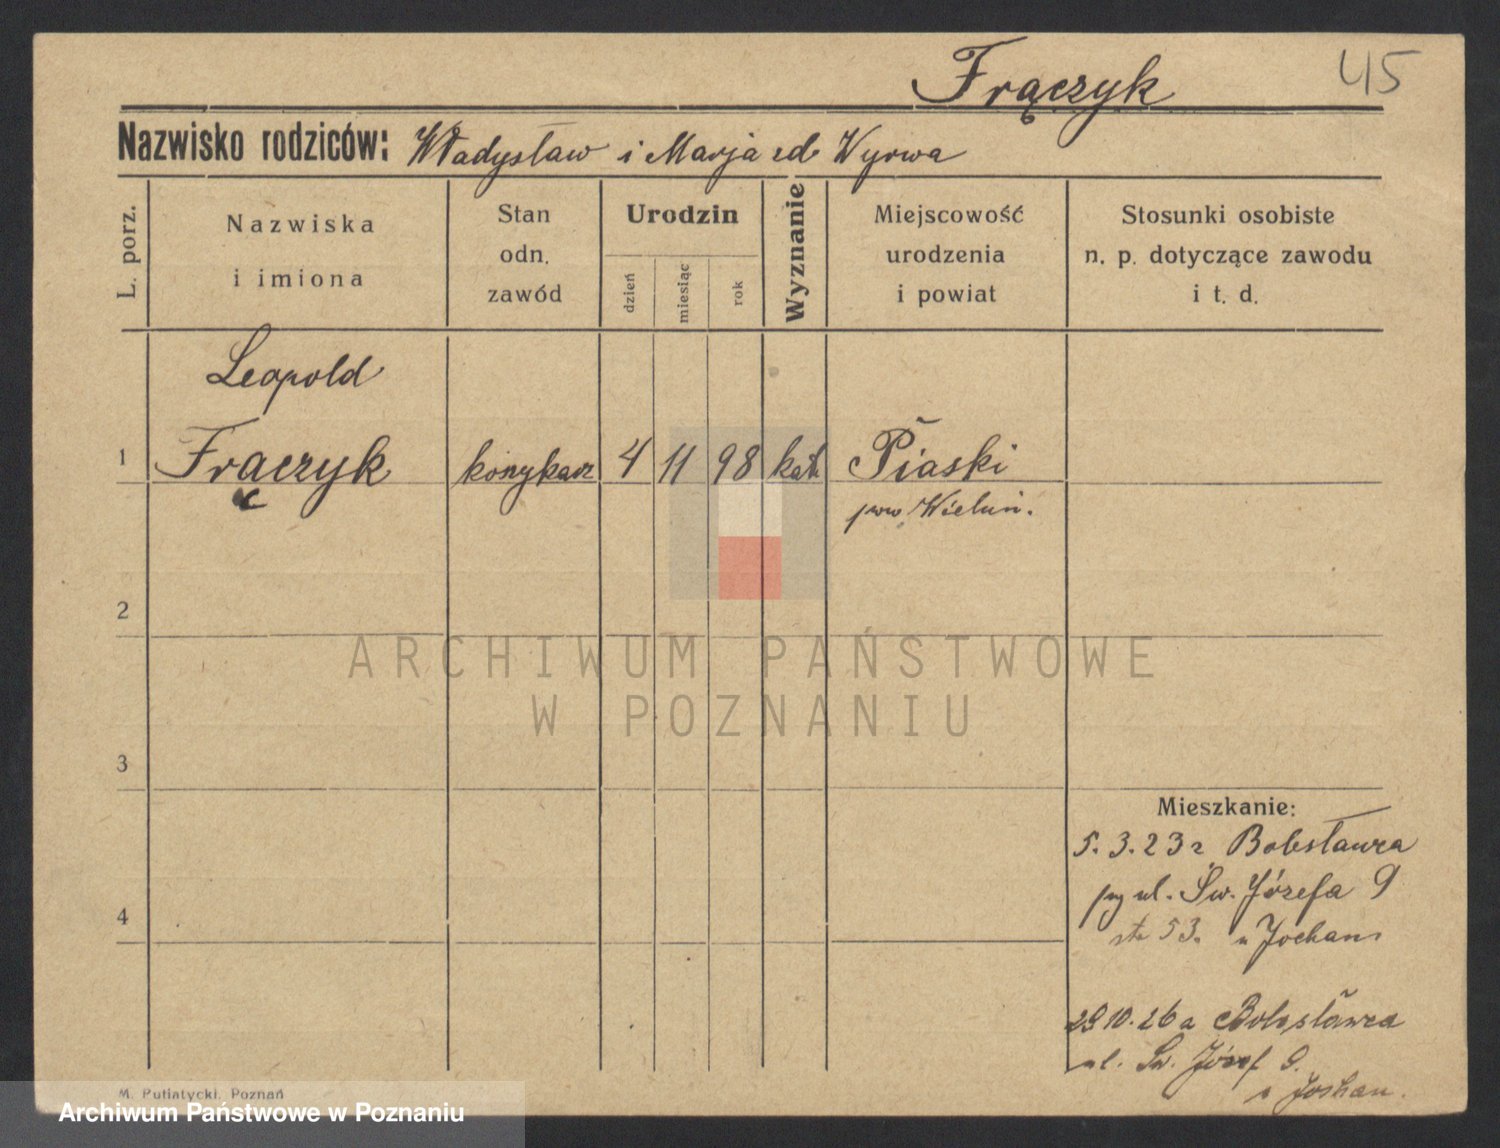 Frączyk 45
Nazwisko rodziców: Władysław i Marja zd Wyrwa
L. porz.
Nazwiska
i imiona
Stan
odn.
zawód
Urodzin
dzień
miesiąc
rok
Wyznanie
Miejscowość
urodzenia
i powiat
Stosunki osobiste
n. p. dotyczące zawodu
i t. d.
Leopold
1 Frączyk koszykarz 4 11 98 kat Piaski
pow Wieluń.
2
ARCHIWUM PAŃSTWOWE
W POZNANIU
3
Mieszkanie:
5.3.23 z Bolesławca
ul. Św. Józefa 9
53. u Jochan
4
29 10.26 Bolesławca
ul. Św. Józef 9.
Joshan.
M. Putiatycki, Poznań
Archiwum Państwowe w Poznaniu